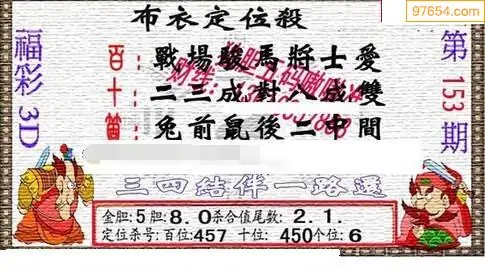 97654.com
布衣定位殺
福彩3D
第153期
百:戰場駿馬將士愛
十:二三成對八成雙
個:兔前鼠後二中間
三四結伴一路還
金胆:5胆:8.0杀合值尾数:2.1.
定位杀号:百位:457十位:450个位:6